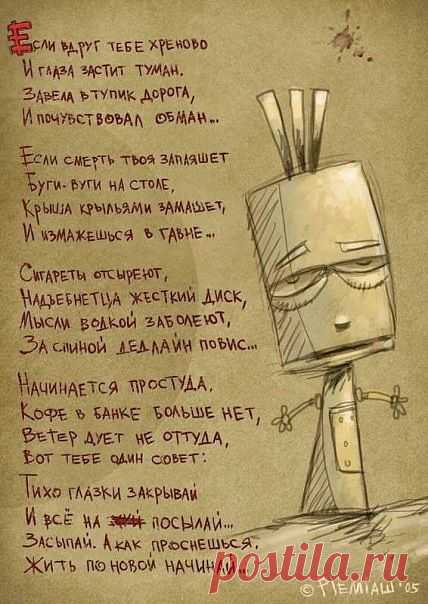 Если вдруг тебе хреново
И глаза застит туман.
Завела в тупик дорога,
И почувствовал обман...
Если смерть твоя запляшет
Буги-вуги на столе,
Крыша крыльями замашет,
И измажешься в гавне...
Сигареты отсыреют,
Надъебнетца жесткий диск,
Мысли водкой заболеют,
За спиной дедлайн повис...
Начинается простуда,
Кофе в банке больше нет,
Ветер дует не оттуда,
Вот тебе один совет:
Тихо глазки закрывай
И всё на посылай...
Засыпай. А как проснешься,
Жить по новой начинай...
postila.ru
© Пемташ '05